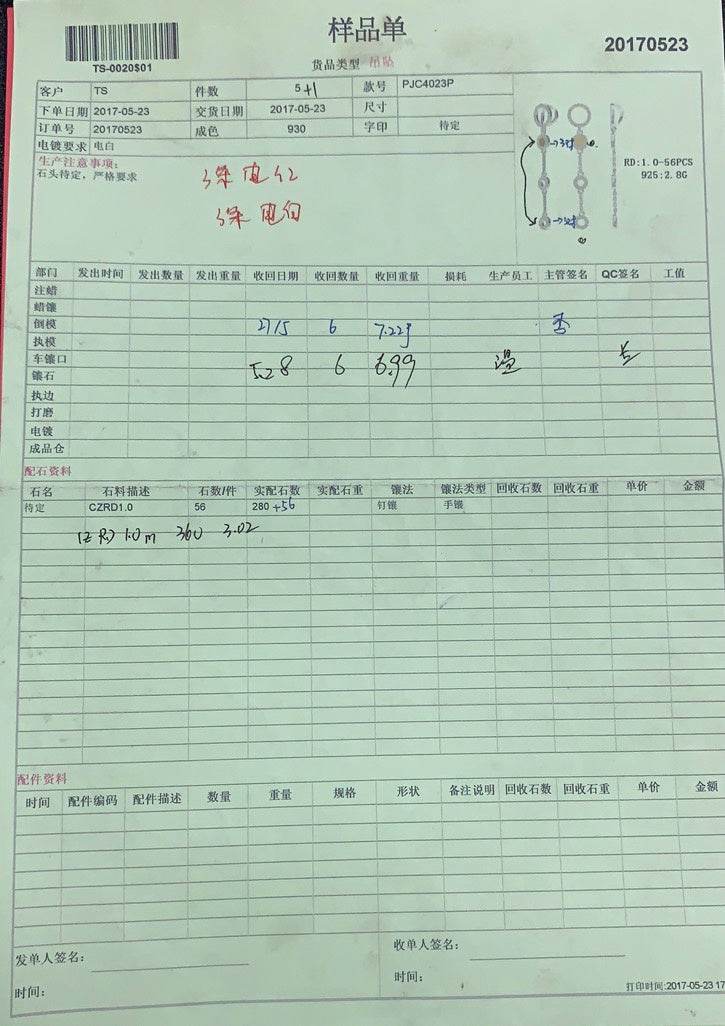 样品单
TS-0020$01
货品类型 吊坠
20170523
客户 TS 件数 5+1 款号 PJC4023P
下单日期 2017-05-23 交货日期 2017-05-23 尺寸
订单号 20170523 成色 930 字印 待定
电镀要求 电白
生产注意事项:
石头待定，严格要求
电红
电白
RD:1.0-56PCS
925:2.8G
部门 发出时间 发出数量 发出重量 收回日期 收回数量 收回重量 损耗 生产员工 主管签名 QC签名 工值
注蜡
蜡镶
倒模 27/5 6 7.22
执模
车镶口 5.28 6 6.99
镶石
执边
打磨
电镀
成品仓
配石资料
石名 石料描述 石数/件 实配石数 实配石重 镶法 镶法类型 回收石数 回收石重 单价 金额
待定 CZRD1.0 56 280+56 钉镶 手镶
1.0m 360 3.02
配件资料
时间 配件编码 配件描述 数量 重量 规格 形状 备注说明 回收石数 回收石重 单价 金额
发单人签名: 收单人签名:
时间: 时间:
打印时间:2017-05-23 17